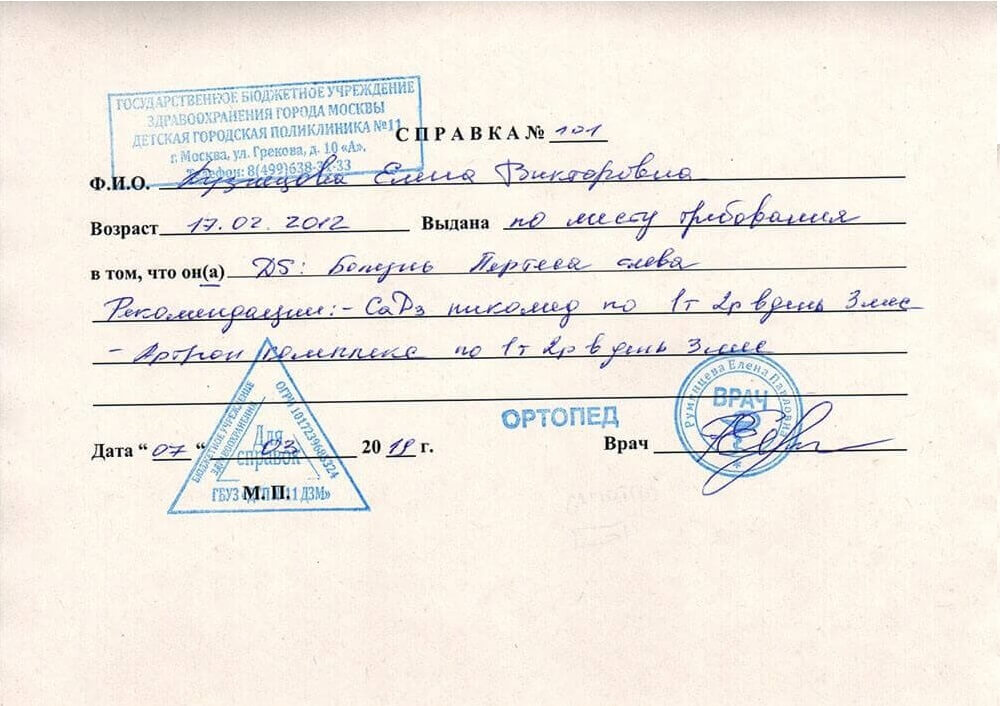 ГОСУДАРСТВЕННОЕ БЮДЖЕТНОЕ УЧРЕЖДЕНИЕ
ЗДРАВООХРАНЕНИЯ ГОРОДА МОСКВЫ
ДЕТСКАЯ ГОРОДСКАЯ ПОЛИКЛИНИКА №11
г. Москва, ул. Грекова, д. 10 «А».
телефон: 8(499)638-3X-33
СПРАВКА № 101
Ф.И.О. Кузнецова Елена Викторовна
Возраст 17.02.2012 Выдана по месту требования
в том, что он(а) DS: Болезнь Пертеса слева
Рекомендации: - СаD3 никомед по 1т 2р в день 3 мес
- Артрон комплекс по 1т 2р в день 3 мес
БЮДЖЕТНОЕ УЧРЕЖДЕНИЕ
ЗДРАВООХРАНЕНИЯ
ОГРН
Для
справок
ГБУЗ 11 ДЗМ»
ОРТОПЕД
Румянцева Елена Павловна
ВРАЧ
Дата “ 07 “ 03 20 19 г. Врач
М. П.